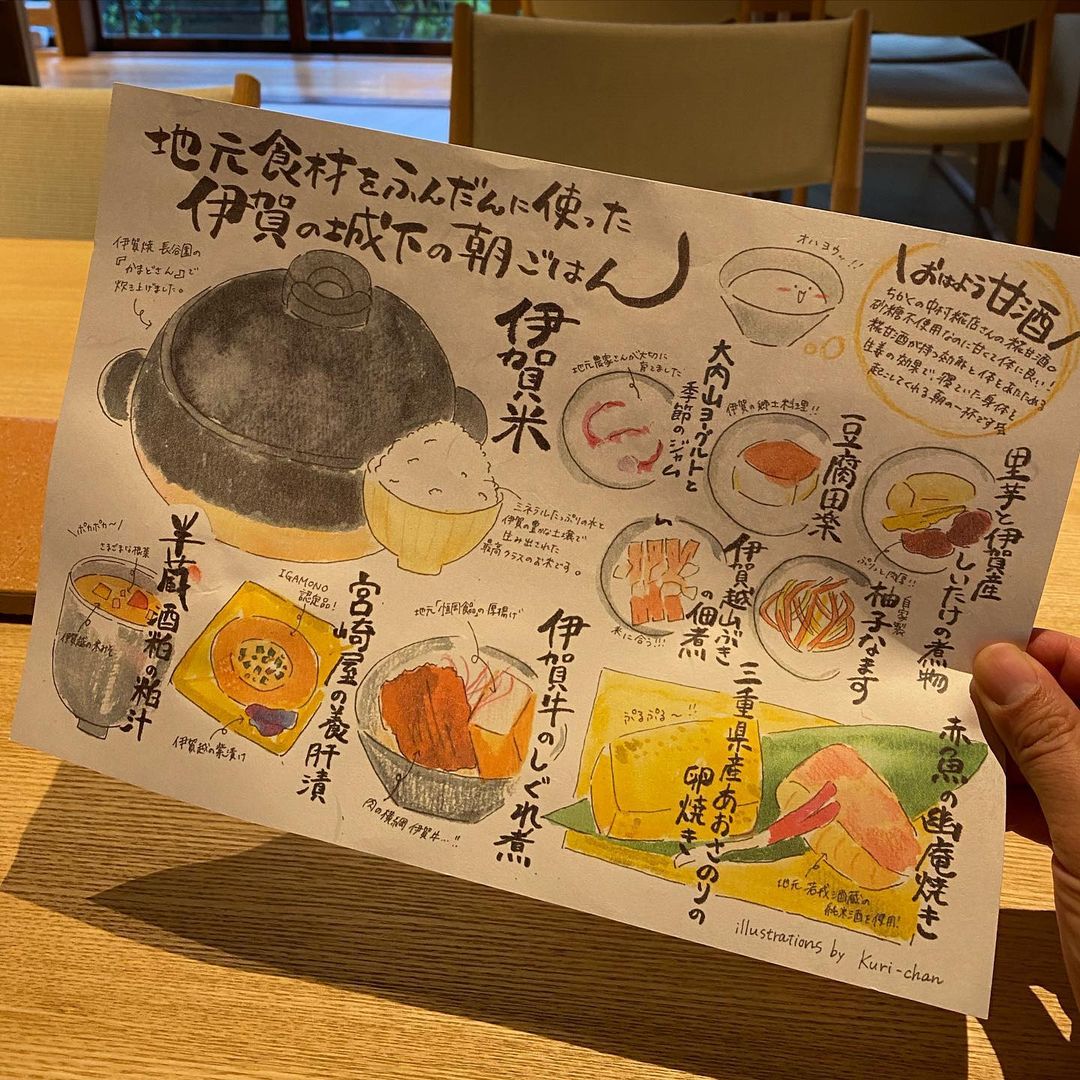 地元食材をふんだんに使った
伊賀の城下の朝ごはん
伊賀焼 長谷園の
『かまどさん』で
炊き上げました。
伊賀米
ミネラルたっぷりの水と
伊賀の豊かな土壌で
生み出された
最高クラスのお米です。
オハヨウッ!!
おはよう甘酒
ちかくの中村糀店さんの糀甘酒。
砂糖不使用なのに甘くて体に良い!
糀甘酒が持つ効能と体をあたためる
生姜の効果で、寝ていた身体を
起こしてくれる朝の一杯です
地元農家さんが大切に
育てました
大内山ヨーグルトと
季節のジャム
伊賀の郷土料理!!
豆腐田楽
里芋と伊賀産
しいたけの煮物
ぷりっと肉厚!!
米に合う!!!
伊賀越山ぶき
の佃煮
自家製
柚子なます
\ポカポカ〜/
さまざまな根菜
半蔵酒粕の粕汁
IGAMONO
認定品!
宮崎屋の養肝漬
伊賀越の紫漬け
の厚揚げ
伊賀牛のしぐれ煮
肉の横綱 伊賀牛…!!
ぷるぷる〜!!
三重県産あおさのりの
卵焼き
赤魚の幽庵焼き
地元 若戎酒蔵の
純米酒を使用!
illustrations by Kuri-chan